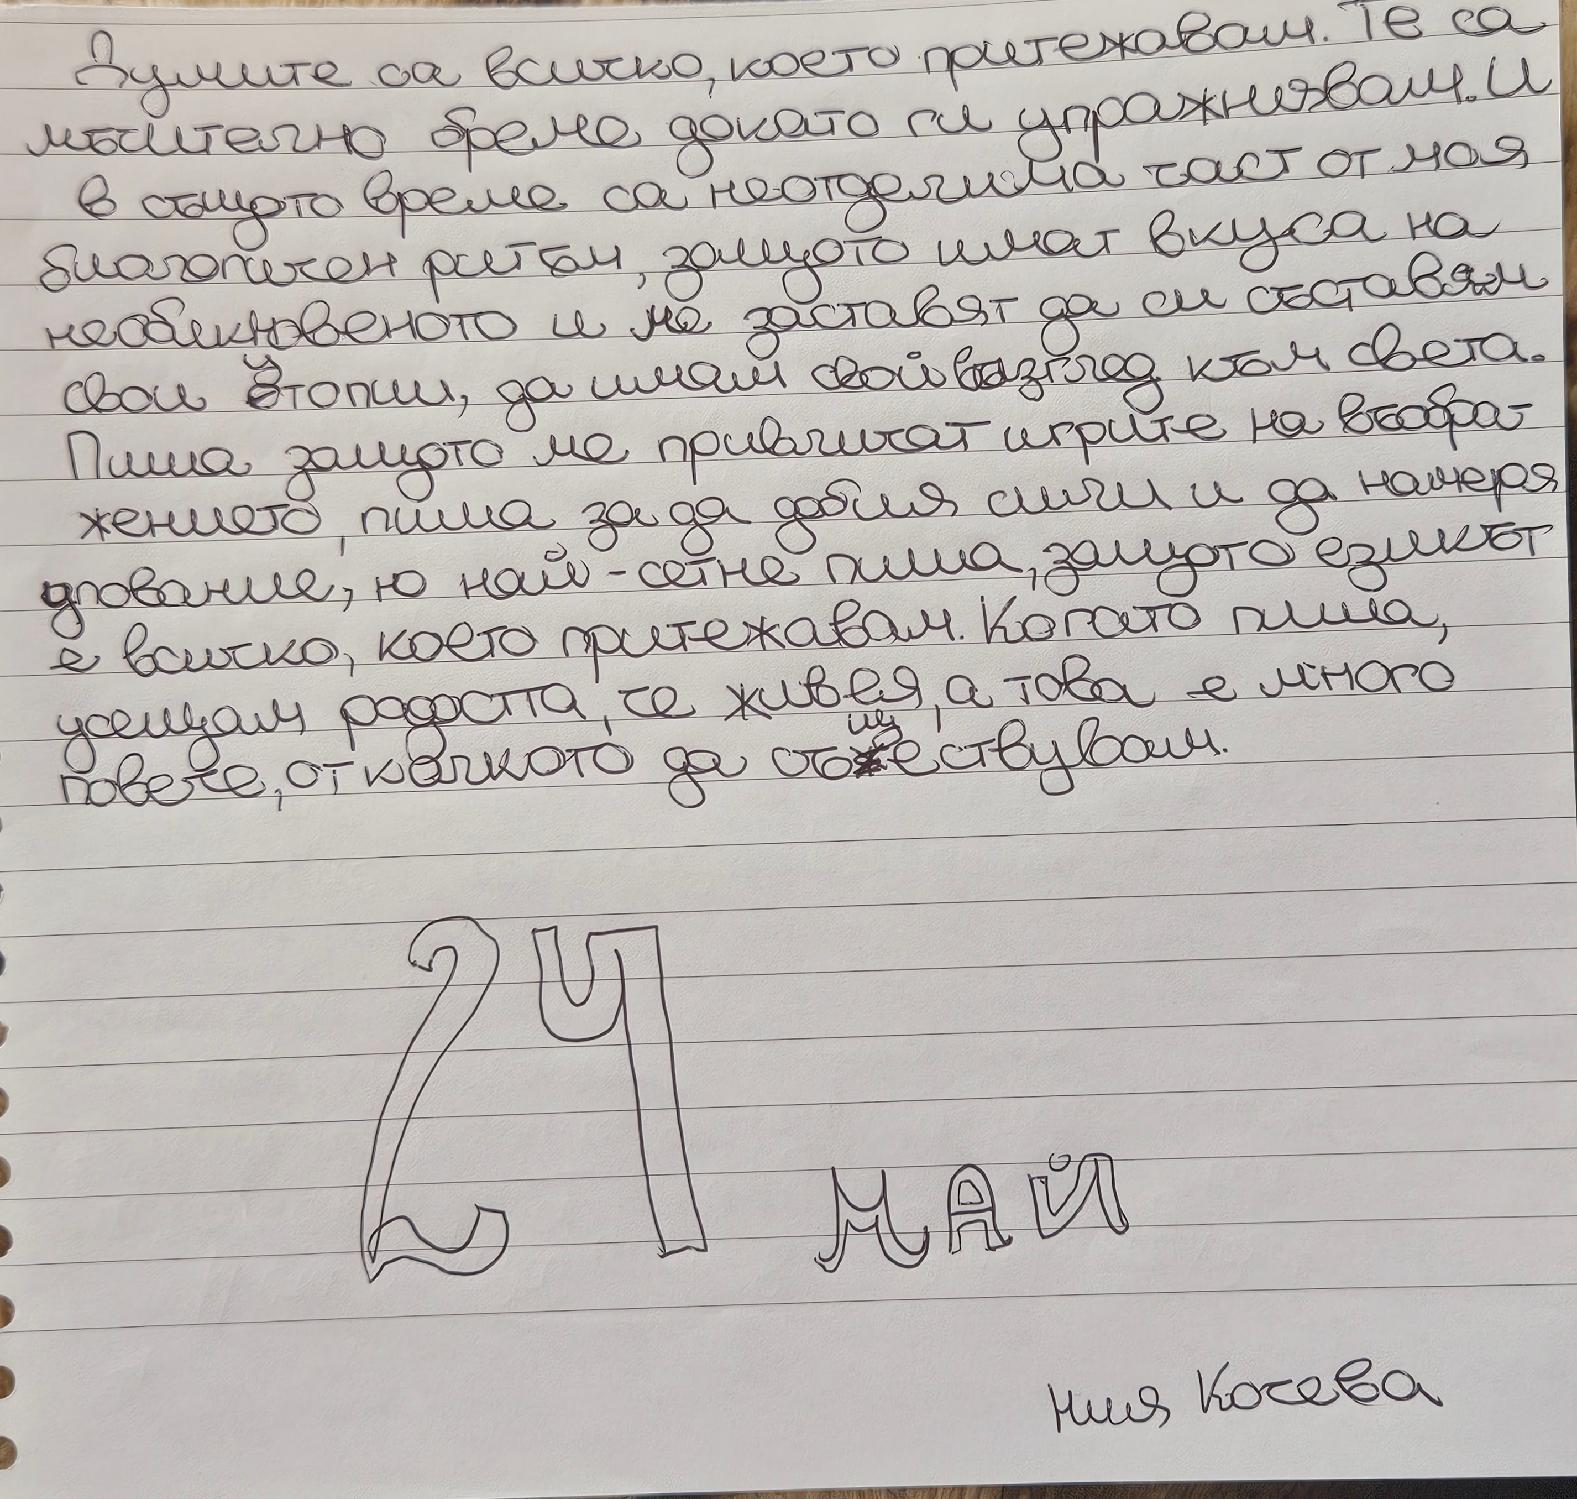 Думите са всичко, което притежавам. Те са
мъчително бреме докато ги упражнявам. И
в същото време са неотделима част от моя
биологичен ритъм, защото имат вкуса на
необикновеното и ме заставят да си съставям
свои утопии, да имам свой възглед към света.
Пиша защото ме привличат игрите на въобра-
жението, пиша за да добия сили и да намеря
упование, ю най-сетне пиша, защото езикът
е всичко, което притежавам. Когато пиша,
усещам радостта, че живея, а това е много
повече, от колкото да съществувам.
24 май
Ния Кочева